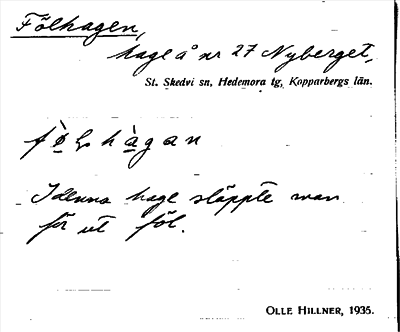 Fölhagen,
hage å nr 27 Nyberget,
St. Skedvi sn, Hedemora tg, Kopparbergs län.
I denna hage släppte man
för ut föl.
OLLE HILLNER, 1935.